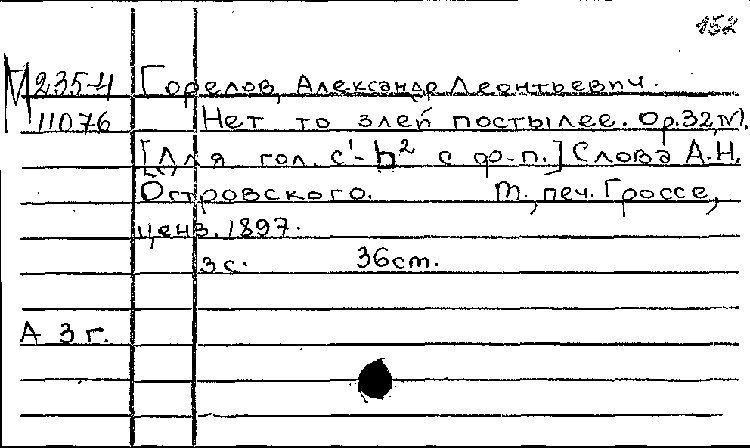 152
М 235-4 Горелов, Александр Леонтьевич.
11076 Нет то злей постылее. Ор.32, IV).
[Для гол. c¹-h² с ф-п.] Слова А.Н.
Островского. М., печ. Гроссе,
ценз. 1897.
3 с. 36cm.
А 3 г.